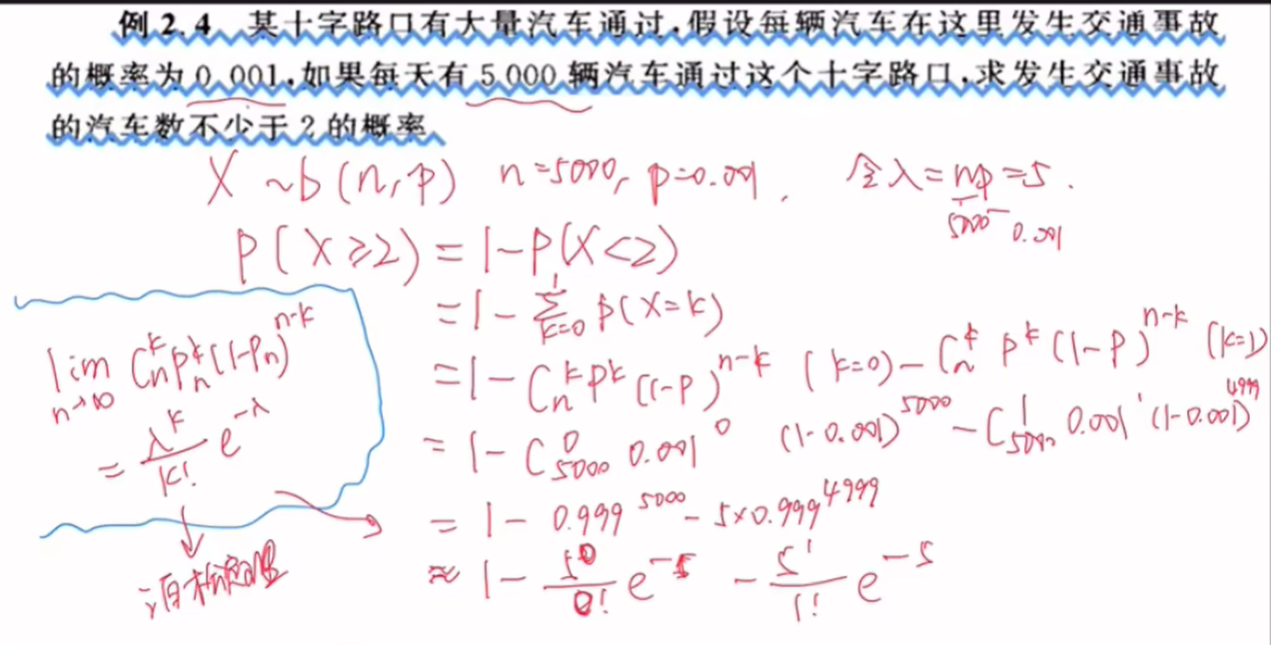 例 2.4 某十字路口有大量汽车通过,假设每辆汽车在这里发生交通事故
的概率为 0.001,如果每天有 5 000 辆汽车通过这个十字路口,求发生交通事故
的汽车数不少于 2 的概率.
X ~ b(n,p) n=5000, p=0.001. 令λ=np=5.
5000 0.001
P(X≥2) = 1-P(X<2)
=1-∑_{k=0}^{1} P(X=k)
=1-C_n^k P^k (1-P)^{n-k} (k=0) - C_n^k P^k (1-P)^{n-k} (k=1)
=1-C_{5000}^0 0.001^0 (1-0.001)^{5000} - C_{5000}^1 0.001^1 (1-0.001)^{4999}
=1-0.999^{5000}-5×0.999^{4999}
≈1-\frac{5^0}{0!}e^{-5}-\frac{5^1}{1!}e^{-5}
lim_{n→∞} C_n^k P_n^k (1-P_n)^{n-k}
=\frac{λ^k}{k!}e^{-λ}
泊松定理